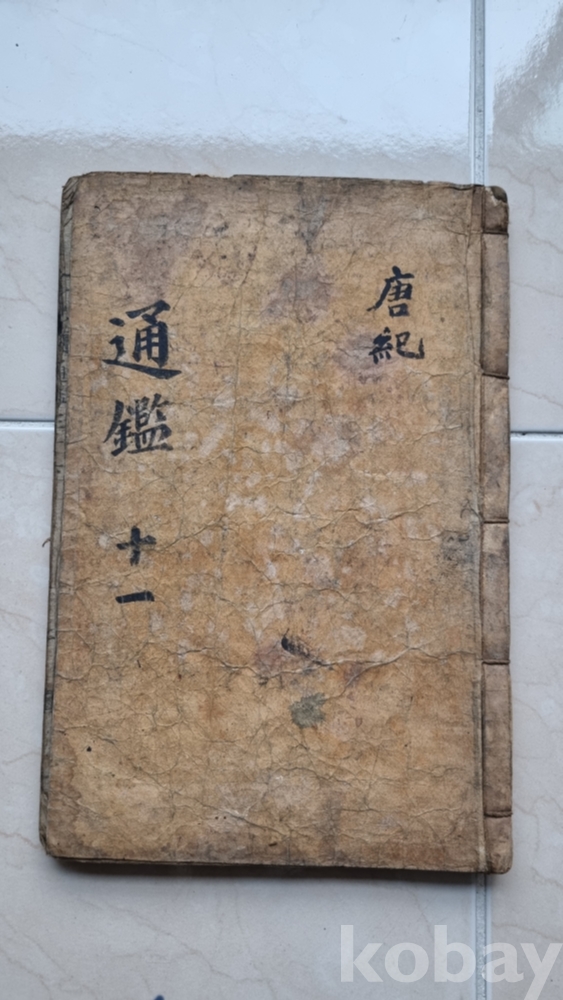 唐紀
通鑑 十一
kobay